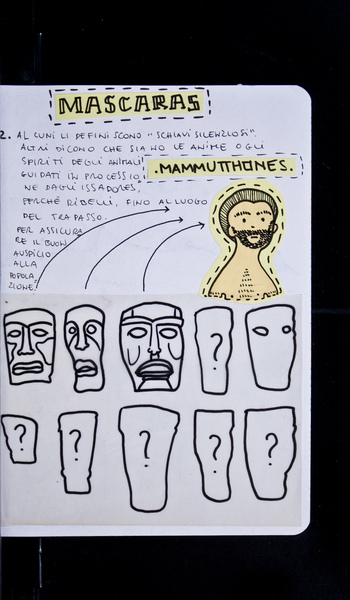 MASCARAS
2. ALCUNI LI DEFINISCONO "SCHIAVI SILENZIOSI".
ALTRI DICONO CHE SIANO LE ANIME O GLI
SPIRITI DEGLI ANIMALI
.MAMMUTTHONES.
GUIDATI IN PROCESSIO
NE DAGLI ISSADORES,
PERCHÉ RIBELLI, FINO AL LUOGO
DEL TRAPASSO.
PER ASSICURA
RE IL BUON
AUSPICIO
ALLA
POPOLA
ZIONE.
?
? ? ? ? ?